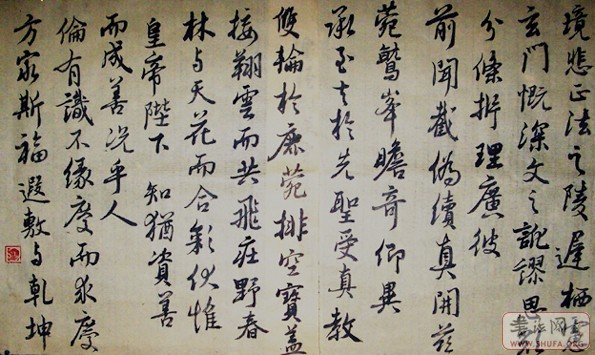 境悲正法之陵遲栖慮
玄門慨深文之訛謬思欲
分條析理廣彼
前聞截偽續真開茲
菀鷲峯瞻奇仰異
承至言於先聖受真教
雙輪於鹿菀排空寶蓋
接翔雲而共飛莊野春
林与天花而合彩伏惟
皇帝陛下 知猶資善
而成善況乎人
倫有識不緣慶而求慶
方冀斯福遐敷与乾坤
WWW.SHUFA.ORG